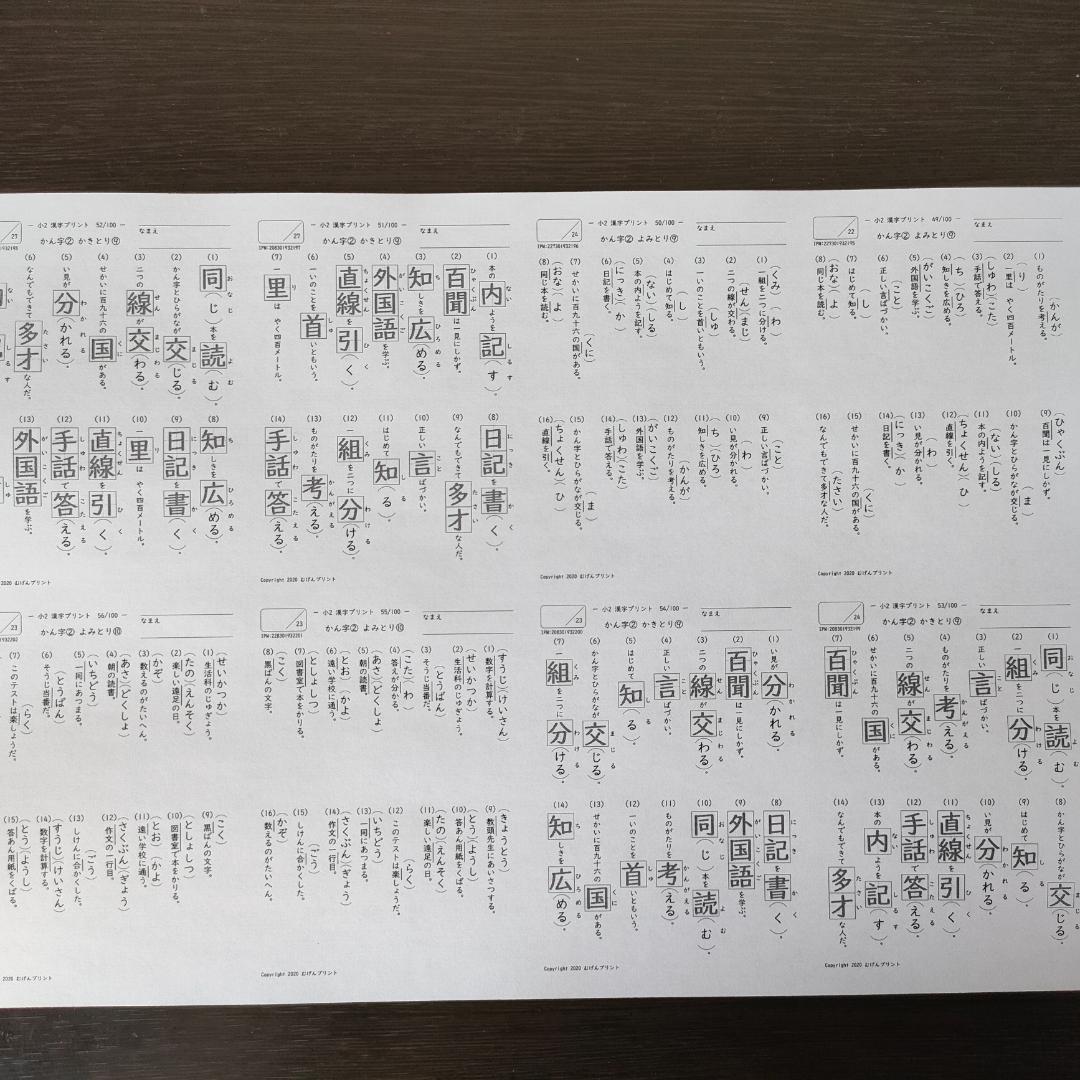 － 小2 漢字プリント 49/100 －
なまえ
22
かん字② よみとり⑨
IPM:227301932195
(1) ものがたりを考える。（かんが）
(2) 一里は やく四百メートル。（り）
(3) 手話で答える。（しゅわ）（こた）
(4) 知しきを広める。（ち）（ひろ）
(5) 外国語を学ぶ。（がいこくご）
(6) 正しい言ばづかい。（こと）
(7) はじめて知る。（し）
(8) 同じ本を読む。（おな）（よ）
(9) 百聞は一見にしかず。（ひゃくぶん）
(10) かん字とひらがなが交じる。（ま）
(11) 本の内ようを記す。（ない）（しる）
(12) 直線を引く。（ちょくせん）（ひ）
(13) い見が分かれる。（わ）
(14) 日記を書く。（にっき）（か）
(15) せかいに百九十六の国がある。（くに）
(16) なんでもできて多才な人だ。（たさい）
－ 小2 漢字プリント 50/100 －
なまえ
24
かん字② よみとり⑨
IPM:227301932196
(1) 一組を二つに分ける。（くみ）（わ）
(2) 二つの線が交わる。（せん）（まじ）
(3) 一いのことを首いともいう。（しゅ）
(4) はじめて知る。（し）
(5) 本の内ようを記す。（ない）（しる）
(6) 日記を書く。（にっき）（か）
(7) せかいに百九十六の国がある。（くに）
(8) 同じ本を読む。（おな）（よ）
(9) 正しい言ばづかい。（こと）
(10) い見が分かれる。（わ）
(11) 知しきを広める。（ち）（ひろ）
(12) ものがたりを考える。（かんが）
(13) 外国語を学ぶ。（がいこくご）
(14) 手話で答える。（しゅわ）（こた）
(15) かん字とひらがなが交じる。（ま）
(16) 直線を引く。（ちょくせん）（ひ）
Copyright 2020 むげんプリント
Copyright 2020 むげんプリント
－ 小2 漢字プリント 51/100 －
なまえ
27
かん字② かきとり⑨
(1) 本の内ようを記（す）。
(2) 百聞は一見にしかず。
(3) 知しきを広（める）。
(4) 外国語を学ぶ。
(5) 直線を引（く）。
(6) 一いのことを首いともいう。
(7) 一里は やく四百メートル。
(8) 日記を書（く）。
(9) なんでもできて多才な人だ。
(10) 正しい言ばづかい。
(11) はじめて知（る）。
(12) 一組を二つに分（ける）。
(13) ものがたりを考（える）。
(14) 手話で答（える）。
Copyright 2020 むげんプリント
－ 小2 漢字プリント 52/100 －
なまえ
27
かん字② かきとり⑨
(1) 同（じ）本を読（む）。
(2) かん字とひらがなが交（じる）。
(3) 二つの線が交（わる）。
(4) せかいに百九十六の国がある。
(5) い見が分（かれる）。
(6) なんでもできて多才な人だ。
(8) 知しきを広（める）。
(9) 日記を書（く）。
(10) 一里は やく四百メートル。
(11) 直線を引（く）。
(12) 手話で答（える）。
(13) 外国語を学ぶ。
2020 むげんプリント
－ 小2 漢字プリント 53/100 －
なまえ
24
かん字② かきとり⑨
(1) 同（じ）本を読（む）。
(2) 一組を二つに分（ける）。
(3) 正しい言ばづかい。
(4) ものがたりを考（える）。
(5) 二つの線が交（わる）。
(6) せかいに百九十六の国がある。
(7) 百聞は一見にしかず。
(8) かん字とひらがなが交（じる）。
(9) はじめて知（る）。
(10) い見が分（かれる）。
(11) 直線を引（く）。
(12) 手話で答（える）。
(13) 本の内ようを記（す）。
(14) なんでもできて多才な人だ。
Copyright 2020 むげんプリント
－ 小2 漢字プリント 54/100 －
なまえ
23
かん字② かきとり⑨
(1) い見が分（かれる）。
(2) 百聞は一見にしかず。
(3) 二つの線が交（わる）。
(4) 正しい言ばづかい。
(5) はじめて知（る）。
(6) かん字とひらがなが交（じる）。
(7) 一組を二つに分（ける）。
(8) 日記を書（く）。
(9) 外国語を学ぶ。
(10) 同（じ）本を読（む）。
(11) ものがたりを考（える）。
(12) 一いのことを首いともいう。
(13) せかいに百九十六の国がある。
(14) 知しきを広（める）。
Copyright 2020 むげんプリント
－ 小2 漢字プリント 55/100 －
なまえ
23
かん字② よみとり⑩
(1) 数字を計算する。（すうじ）（けいさん）
(2) 生活科のじゅぎょう。（せいかつか）
(3) そうじ当番だ。（とうばん）
(4) 答えが分かる。（こた）（わ）
(5) 朝の読書。（あさ）（どくしょ）
(6) 遠い学校に通う。（とお）（かよ）
(7) 図書室で本をかりる。（としょしつ）
(8) 黒ばんの文字。（こく）
(9) 教頭先生にあいさつする。（きょうとう）
(10) 答あん用紙をくばる。（とう）（ようし）
(11) 楽しい遠足の日。（たの）（えんそく）
(12) このテストは楽しょうだ。（らく）
(13) 一同にあつまる。（いちどう）
(14) 作文の一行目。（さくぶん）（ぎょう）
(15) しけんに合かくした。（ごう）
(16) 数えるのがたいへん。（かぞ）
Copyright 2020 むげんプリント
－ 小2 漢字プリント 56/100 －
なまえ
23
かん字② よみとり⑩
(1) 生活科のじゅぎょう。（せいかつか）
(2) 楽しい遠足の日。（たの）（えんそく）
(3) 数えるのがたいへん。（かぞ）
(4) 朝の読書。（あさ）（どくしょ）
(5) 一同にあつまる。（いちどう）
(6) そうじ当番だ。（とうばん）
(7) このテストは楽しょうだ。（らく）
(9) 黒ばんの文字。（こく）
(10) 図書室で本をかりる。（としょしつ）
(11) 遠い学校に通う。（とお）（かよ）
(12) 作文の一行目。（さくぶん）（ぎょう）
(13) しけんに合かくした。（ごう）
(14) 数字を計算する。（すうじ）（けいさん）
(15) 答あん用紙をくばる。（とう）（ようし）
2020 むげんプリント